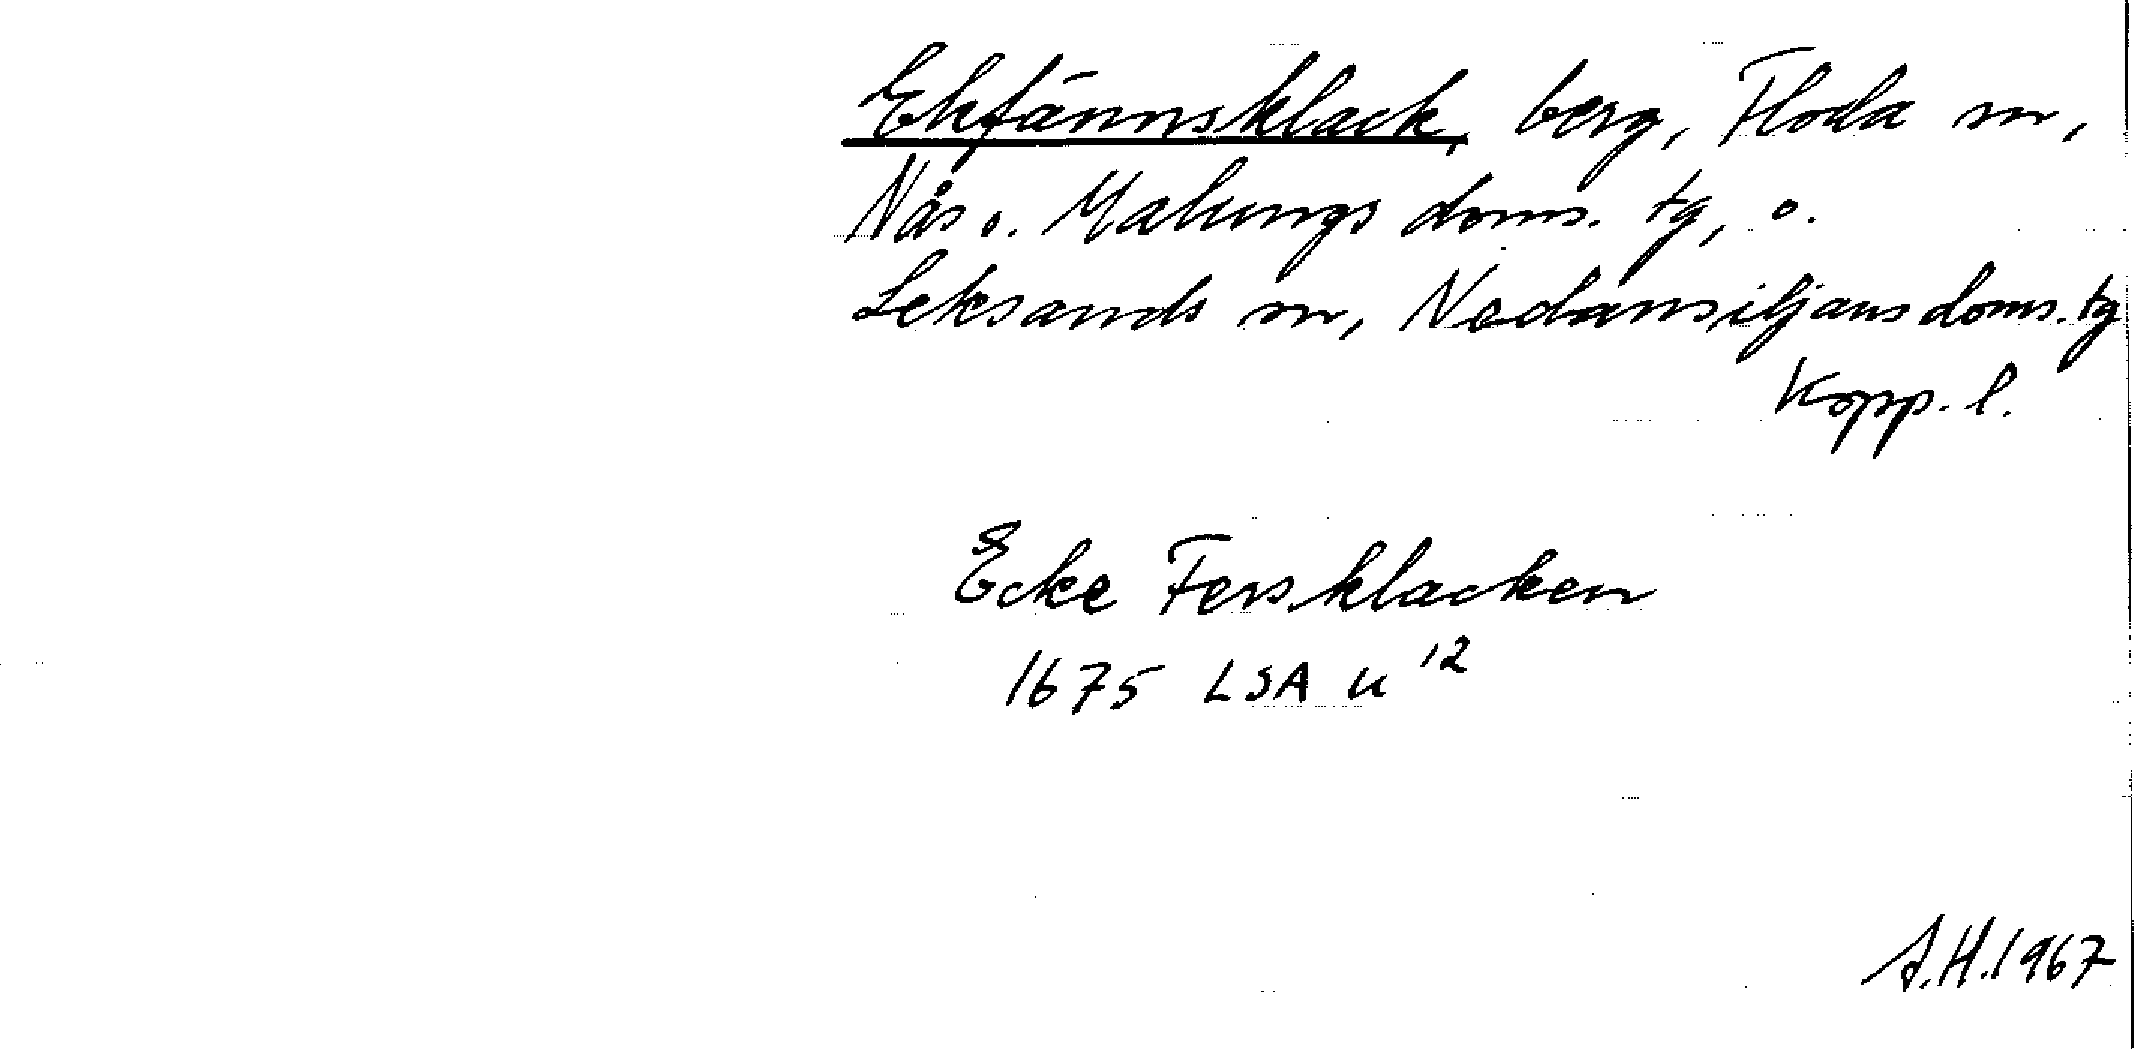 Ekfännsklack, berg, Floda sn,
Nås o. Malungs doms. tg, o.
Leksands sn, Nedansiljans doms. tg
Kopp. l.
Ecke Fersklacken
1675 LSA u 12
A.H. 1967